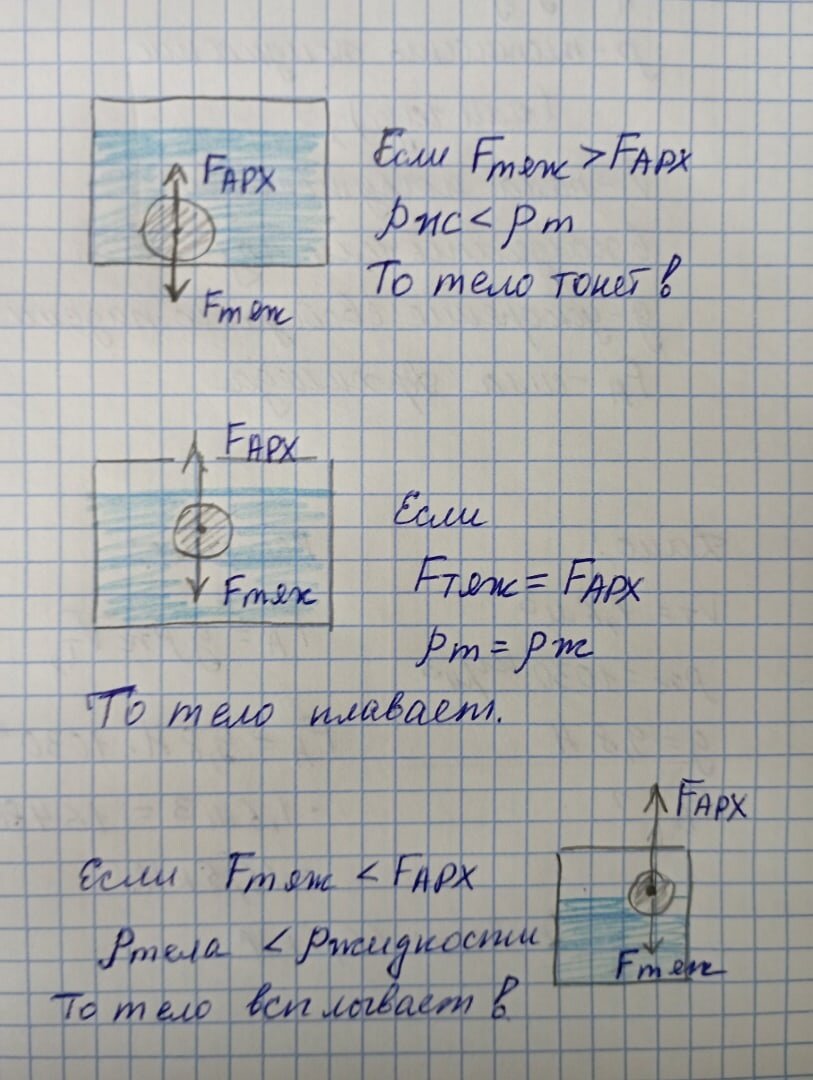 Fарх
Fтяж
Если Fтяж > Fарх
ρж < ρт
То тело тонет!
Fарх
Fтяж
Если
Fтяж = Fарх
ρт = ρж
То тело плавает.
Если Fтяж < Fарх
ρтела < ρжидкости
То тело всплывает!
Fарх
Fтяж